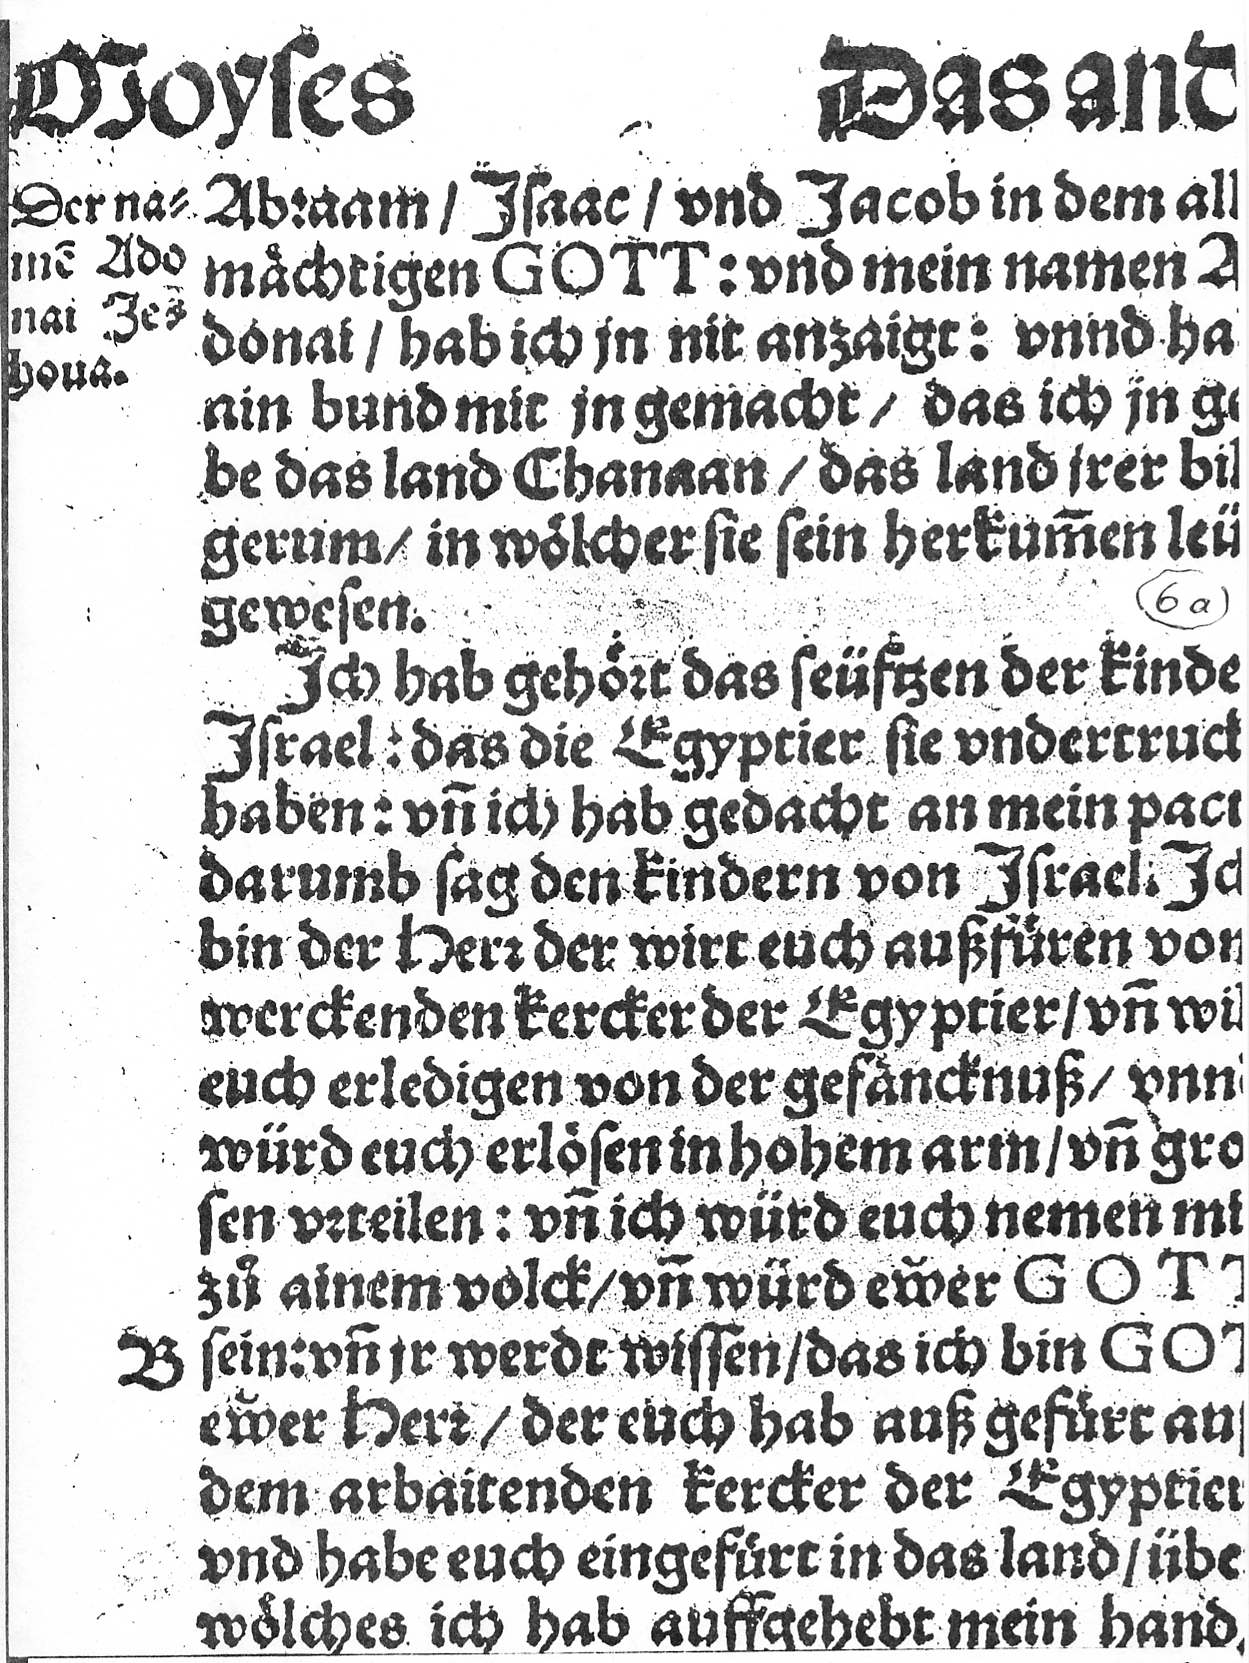 Moyses
Das and
Der na⸗
mē Ado
nai Jes
houa.
Abraam / Jsaac / vnd Jacob in dem all
maͤchtigen GOTT : vnd mein namen A
donai / hab ich jn nit anzaigt : vnnd ha
ain bund mit jn gemacht / das ich jn ge
be das land Chanaan / das land jrer bil
gerum / in woͤlcher sie sein herkum̄en leü
gewesen.
6 a
Jch hab gehoͤrt das seüftzen der kinde
Jsrael : das die Egyptier sie vndertruck
haben : vn̄ ich hab gedacht an mein pact
darumb sag den kindern von Jsrael: Ich
bin der Herr der wirt euch außfüren von
werckenden kercker der Egyptier / vn̄ wil
euch erledigen von der gefäncknuß / vnnd
würd euch erlösen in hohem arm / vn̄ gro
sen vrteilen : vn̄ ich würd euch nemen mi
zuͦ ainem volck / vn̄ würd ew̃er GOTT
B
sein: vn̄ jr werdt wissen / das ich bin GOT
ew̃er Herr / der euch hab auß gefürt auß
dem arbaitenden kercker der Egyptier
vnd habe euch eingefürt in das land / übe
woͤlches ich hab auffgehebt mein hand,